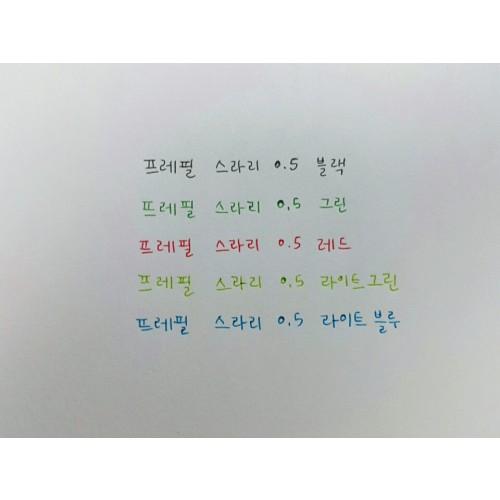 프레필 스라리 0.5 블랙
프레필 스라리 0.5 그린
프레필 스라리 0.5 레드
프레필 스라리 0.5 라이트그린
프레필 스라리 0.5 라이트 블루